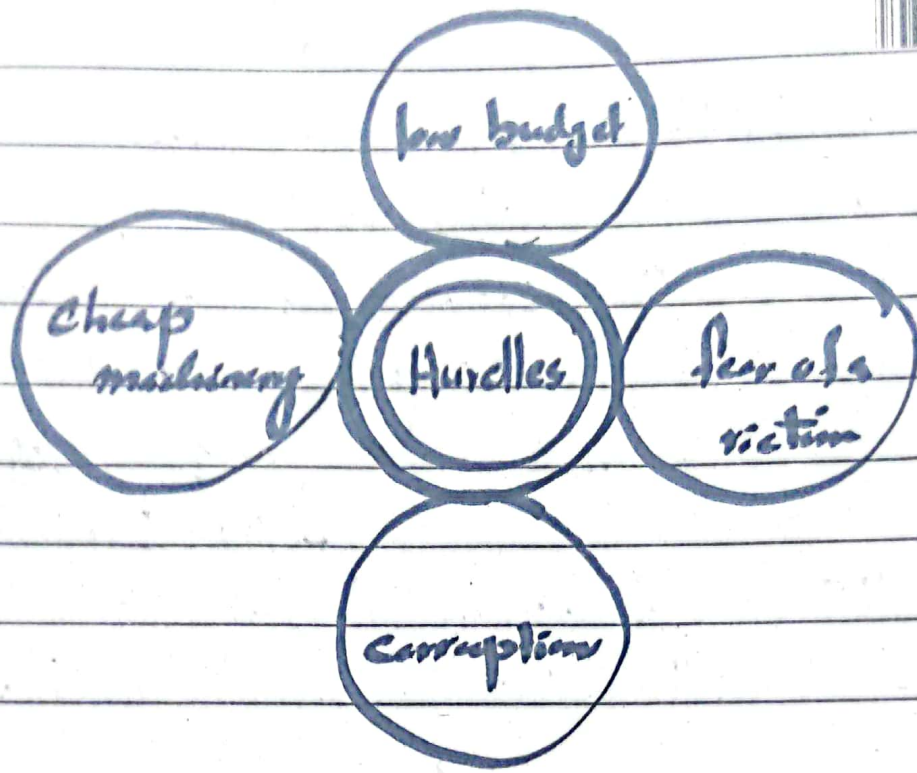 low budget
Cheap
machinery
Hurdles
fear of a
victim
corruption